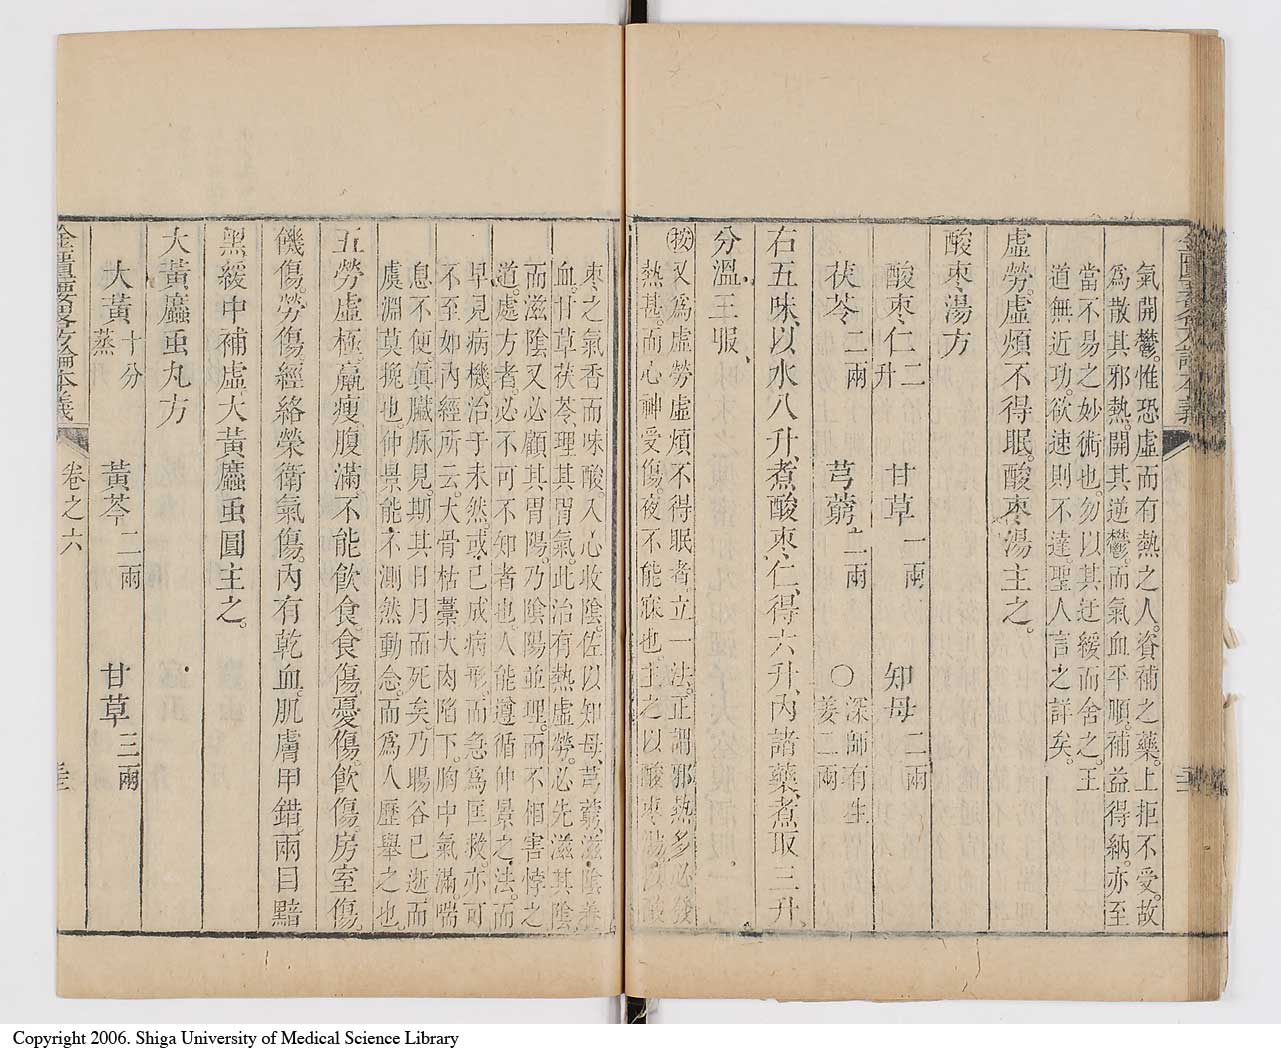 氣開鬱。惟恐虛而有熱之人。資補之藥。上拒不受。故
爲散其邪熱。開其逆鬱。而氣血平順。補益得納。亦至
當不易之妙術也。勿以其迂緩而舍之。王
道無近功。欲速則不達。聖人言之詳矣。
虛勞。虛煩不得眠。酸棗湯主之。
酸棗湯方
酸棗仁二升 甘草一兩 知母二兩
茯苓二兩 芎藭二兩 〇深師有生姜二兩
右五味、以水八升、煮酸棗、仁、得六升、內諸藥、煮取三升、
分溫三服、
按又爲虛勞虛煩不得眠者。立一法。正謂邪熱多。必發
熱甚。而心神受傷。夜不能寐也。主之以酸棗湯。以酸
棗之氣香而味酸。入心收陰。佐以知母、芎藭、滋陰養
血。甘草茯苓、理其胃氣。此治有熱虛勞。必先滋其陰。
而滋陰又必顧其胃陽。乃陰陽並理。而不相害悖之
道。處方者必不可不知者也。人能遵循仲景之法。而
早見病機。治于未然。或已成病形。而急爲匡救。亦可
不至如內經所云。大骨枯藁。大肉陷下。胸中氣滿。喘
息不便。眞臟脉見。期其日月而死矣。乃暘谷已逝。而
虞淵莫挽也。仲景能不測然動念。而爲人歷舉之也。
五勞虛極。羸瘦。腹滿。不能飲食。食傷。憂傷。飲傷。房室傷。
饑傷。勞傷。經絡榮衛氣傷。內有乾血。肌膚甲錯。兩目黯
黑。緩中補虛。大黃䗪虫圓主之。
大黃䗪虫丸方
大黃十分蒸 黃芩二兩 甘草三兩
金匱要畧方論本義 卷之六